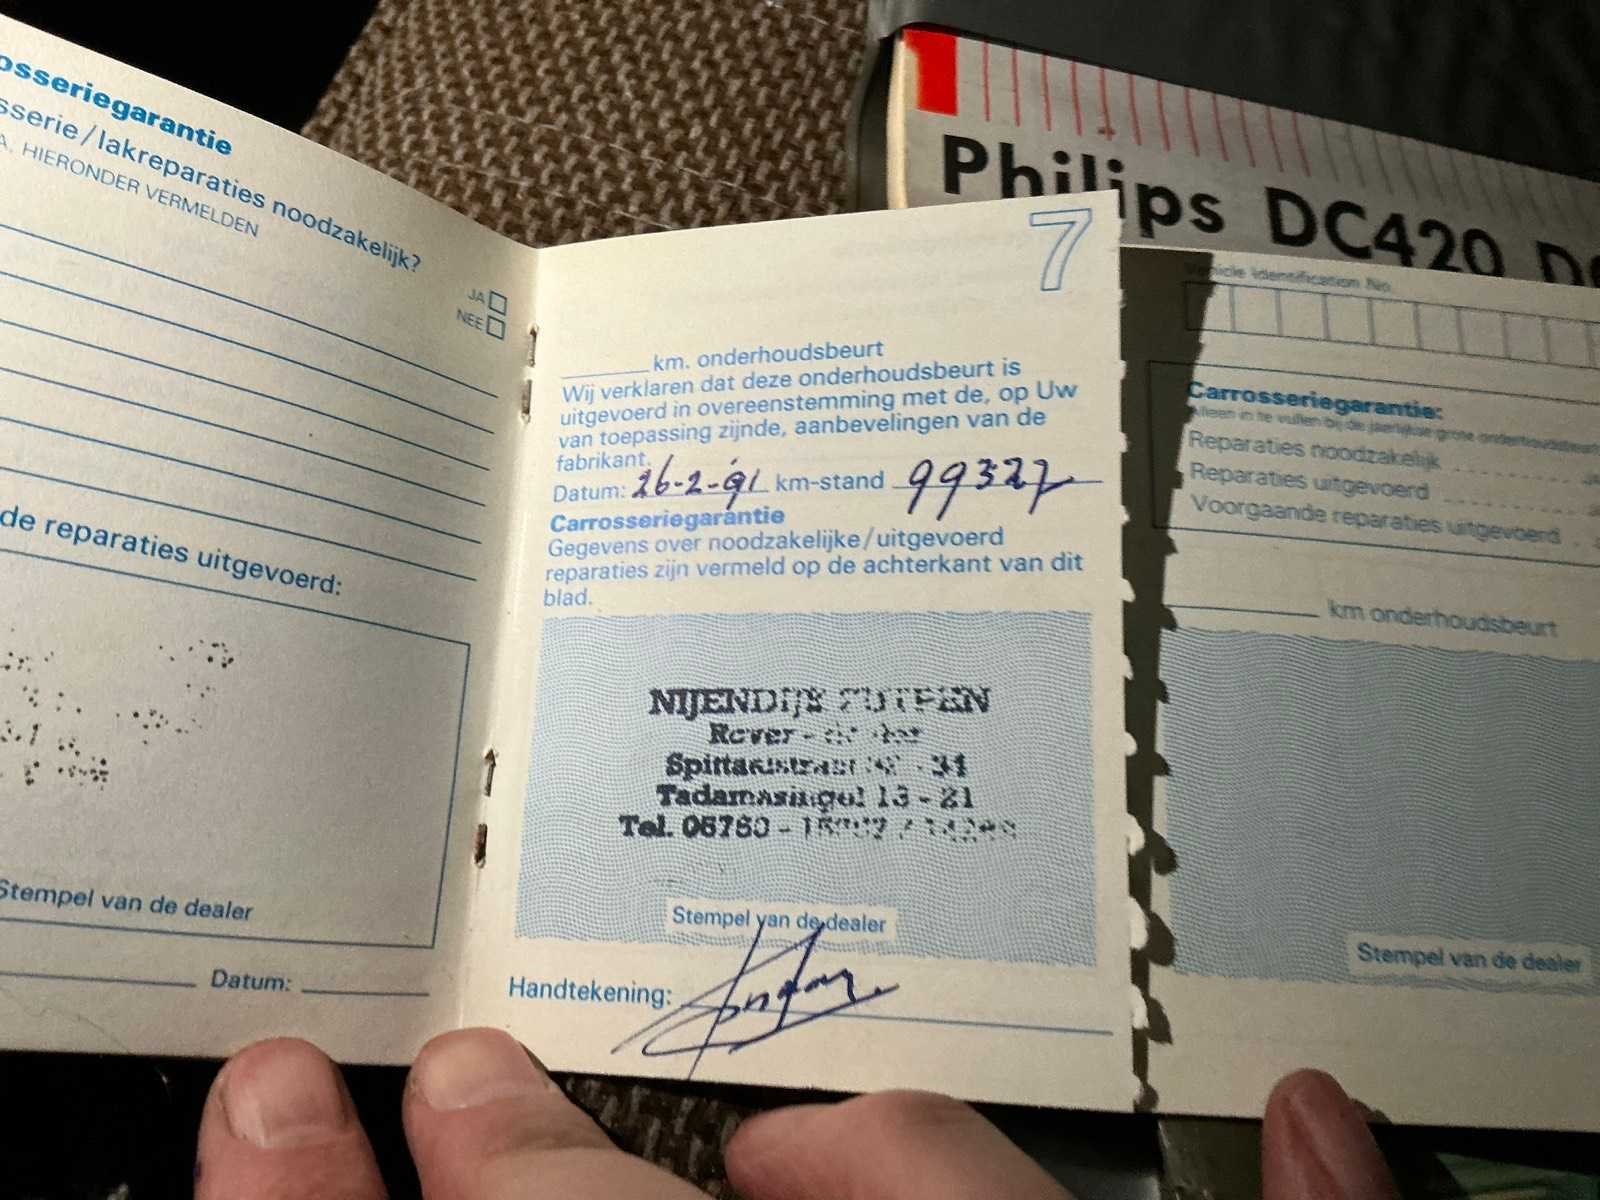 osseriegarantie
sserie/lakreparaties noodzakelijk?
A. HIERONDER VERMELDEN
JA
NEE
de reparaties uitgevoerd:
Stempel van de dealer
Datum:
7
km. onderhoudsbeurt
Wij verklaren dat deze onderhoudsbeurt is
uitgevoerd in overeenstemming met de, op Uw
van toepassing zijnde, aanbevelingen van de
fabrikant.
Datum: 26-2-91 km-stand 99327
Carrosseriegarantie
Gegevens over noodzakelijke/uitgevoerd
reparaties zijn vermeld op de achterkant van dit
blad.
NIJENDIJK ZUTPEN
Rover - dealer
Tadamasingel 13 - 21
Tel. 05750 -
Stempel van de dealer
Handtekening:
Philips DC420
Vehicle Identification No.
Carrosseriegarantie:
Alleen in te vullen bij de jaarlijkse grote onderhoudsbeurt
Reparaties noodzakelijk
Reparaties uitgevoerd
Voorgaande reparaties uitgevoerd
km onderhoudsbeurt
Stempel van de dealer